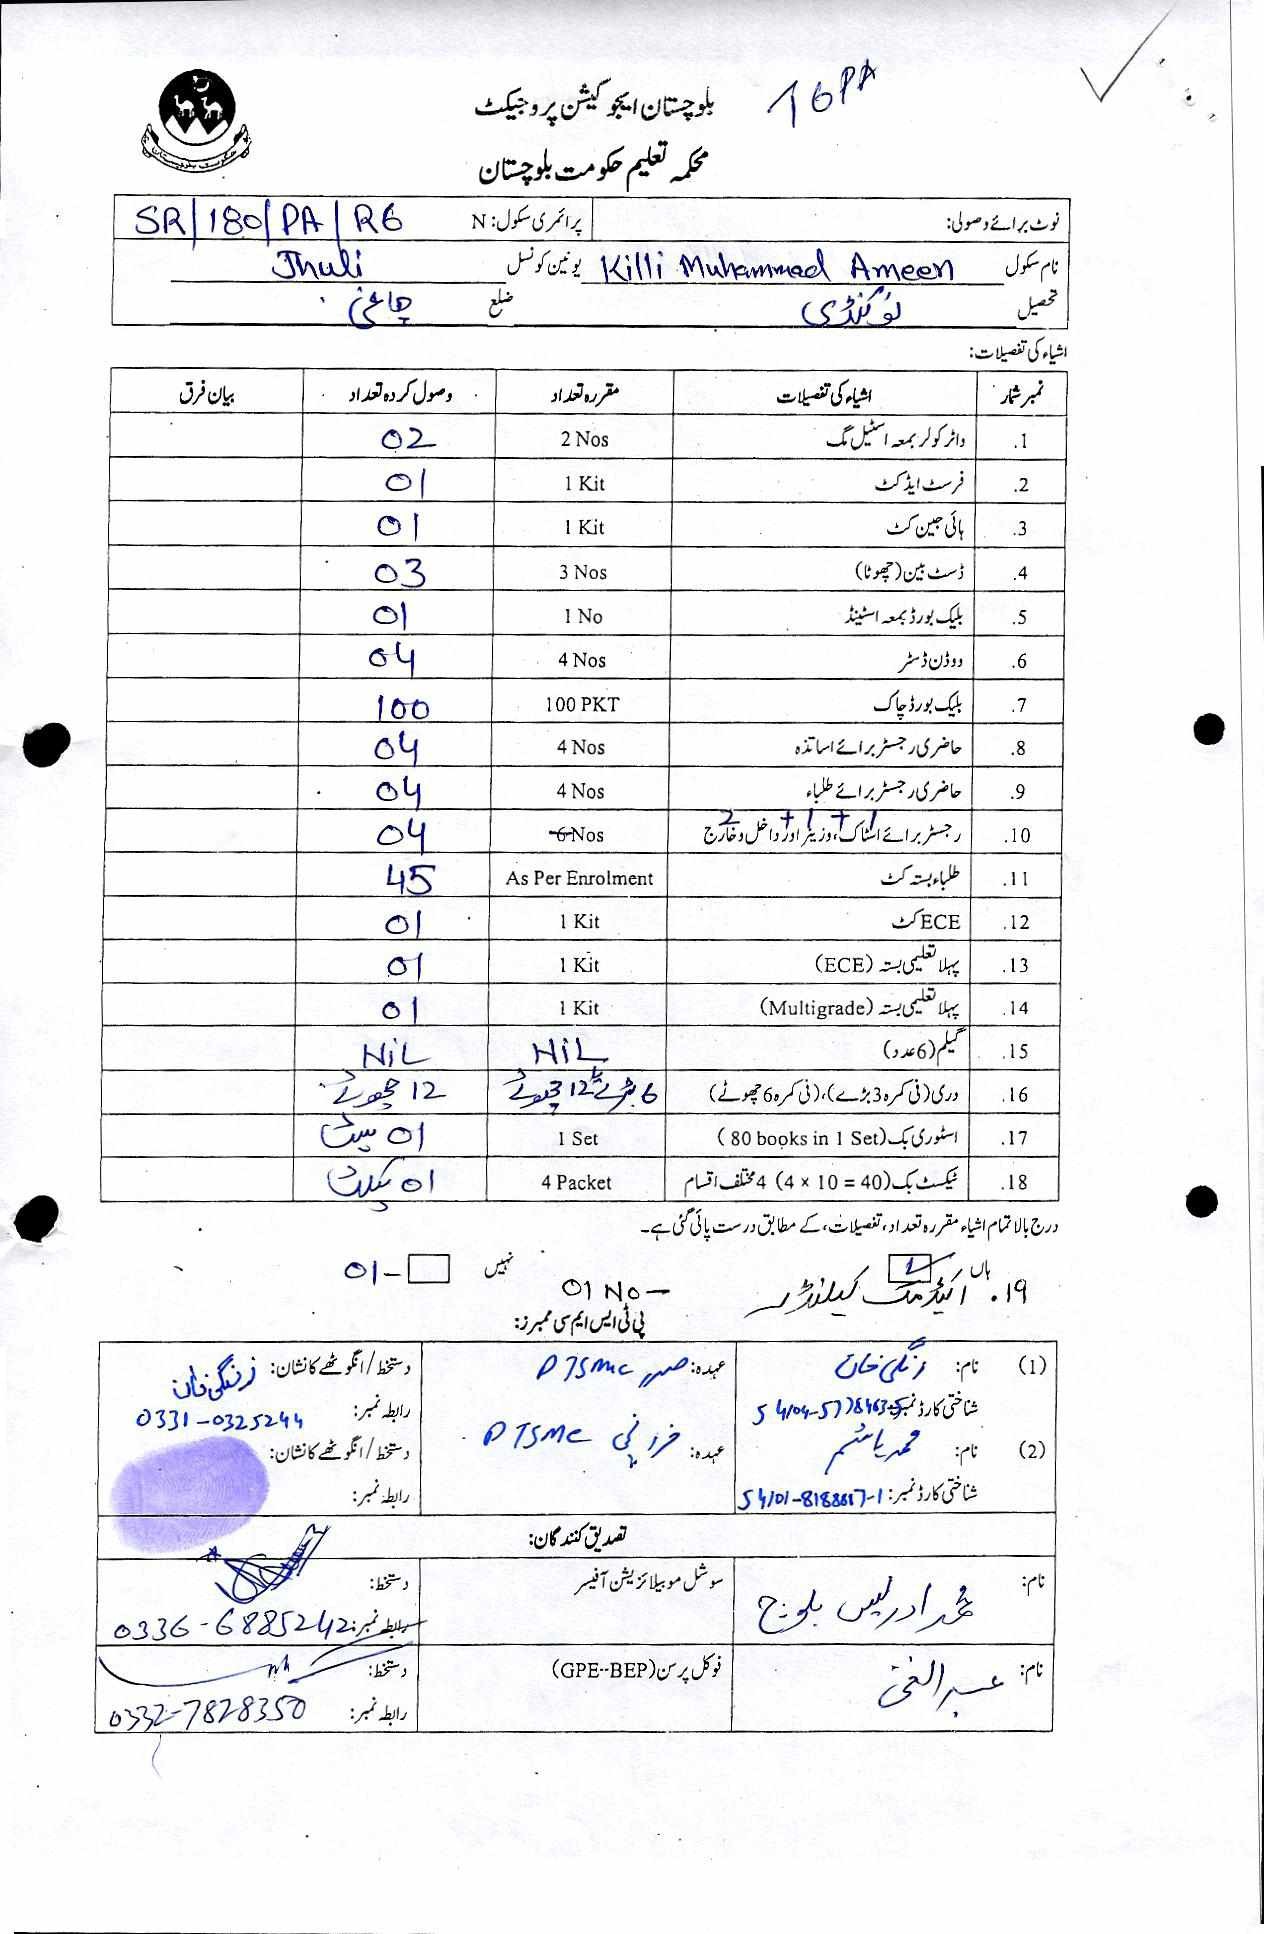 بلوچستان ایجوکیشن پروجیکٹ
محکمہ تعلیم حکومت بلوچستان
حکومت بلوچستان
نوٹ برائے وصولی: پرائمری سکول: N SR/180/PA/R6
نام سکول Killi Muhammad Ameen یونین کونسل Jhuli
تحصیل نوکنڈی ضلع چاغی
اشیاء کی تفصیلات:
نمبر شمار اشیاء کی تفصیلات مقررہ تعداد وصول کردہ تعداد بیان فرق
1. واٹر کولر بمعہ اسٹیل مگ 2 Nos 02
2. فرسٹ ایڈ کٹ 1 Kit 01
3. ہائی جین کٹ 1 Kit 01
4. ڈسٹ بین (چھوٹا) 3 Nos 03
5. بلیک بورڈ بمعہ اسٹینڈ 1 No 01
6. ووڈن ڈسٹر 4 Nos 04
7. بلیک بورڈ چاک 100 PKT 100
8. حاضری رجسٹر برائے اساتذہ 4 Nos 04
9. حاضری رجسٹر برائے طلباء 4 Nos 04
2 +1 +1
10. رجسٹر برائے اسٹاک، وزیٹر اور داخل و خارج 6 Nos 04
11. طلباء بستہ کٹ As Per Enrolment 45
12. ECE کٹ 1 Kit 01
13. پہلا تعلیمی بستہ (ECE) 1 Kit 01
14. پہلا تعلیمی بستہ (Multigrade) 1 Kit 01
15. گیلم (6 عدد) NiL NiL
16. دری (فی کمرہ 3 بڑے)، (فی کمرہ 6 چھوٹے) 6 بڑے 12 چھوٹے 12 چھوٹے
17. اسٹوری بک (80 books in 1 Set) 1 Set 01 سیٹ
18. ٹیکسٹ بک (4 × 10 = 40) 4 مختلف اقسام 4 Packet 01 پیکٹ
درج بالا تمام اشیاء مقررہ تعداد، تفصیلات، کے مطابق درست پائی گئی ہے۔
ہاں نہیں 01-
19. اکیڈمک کیلنڈر 01 No-
پی ٹی ایس ایم سی ممبرز:
(1) نام: زنگی خان عہدہ: صدر PTSMC دستخط/انگوٹھے کا نشان: زنگی خان
شناختی کارڈ نمبر: رابطہ نمبر: 0331-0325244
(2) نام: محمد ہاشم عہدہ: PTSMC دستخط/انگوٹھے کا نشان:
شناختی کارڈ نمبر: رابطہ نمبر:
تصدیق کنندگان:
نام: محمد ادریس بلوچ سوشل موبیلائزیشن آفیسر دستخط:
رابطہ نمبر: 0336-6885242
نام: عبدالغنی فوکل پرسن (GPE--BEP) دستخط:
رابطہ نمبر: 0332-7828350